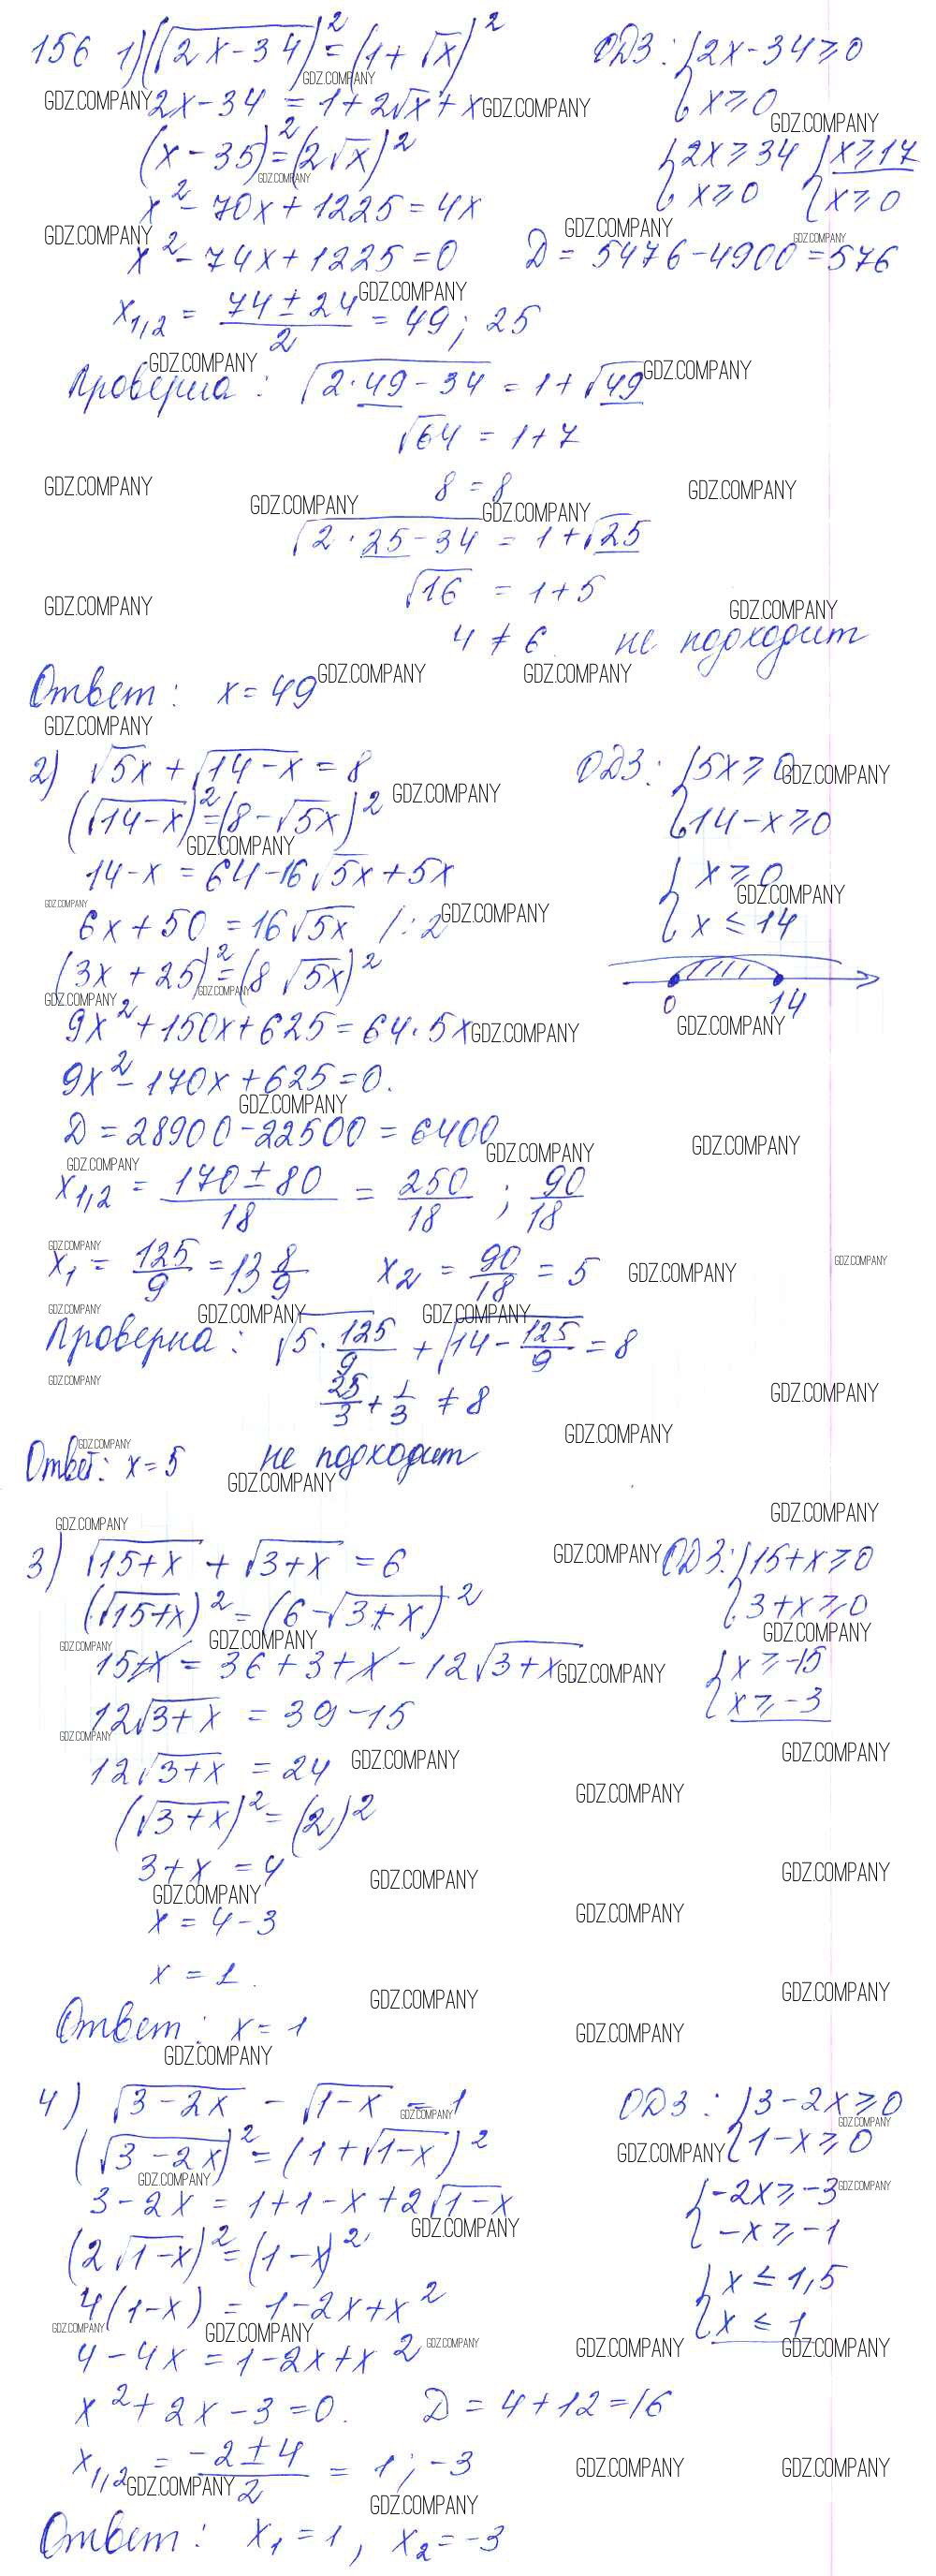 156 1) (√(2x-34))² = (1+√x)² ОДЗ: {2x-34≥0
{x≥0
2x-34 = 1+2√x+x
(x-35)² = (2√x)² {2x≥34 {x≥17
{x≥0 {x≥0
x²-70x+1225=4x
x²-74x+1225=0 D = 5476-4900=576
x₁,₂ = (74±24)/2 = 49; 25
Проверка: √(2·49-34) = 1+√49
√64 = 1+7
8 = 8
√(2·25-34) = 1+√25
√16 = 1+5
4 ≠ 6 не подходит
Ответ: x=49
2) √5x + √(14-x) = 8 ОДЗ: {5x≥0
(√(14-x))² = (8-√5x)² {14-x≥0
14-x = 64-16√5x+5x {x≥0
6x+50 = 16√5x /:2 {x≤14
(3x+25)² = (8√5x)²
0 14
9x²+150x+625=64·5x
9x²-170x+625=0.
D = 28900-22500 = 6400
x₁,₂ = (170±80)/18 = 250/18; 90/18
x₁ = 125/9 = 13 8/9 x₂ = 90/18 = 5
Проверка: √(5·125/9) + √(14-125/9) = 8
25/3 + 1/3 ≠ 8
Ответ: x=5 не подходит
3) √(15+x) + √(3+x) = 6 ОДЗ: {15+x≥0
(√(15+x))² = (6-√(3+x))² {3+x≥0
15+x = 36+3+x-12√(3+x) {x≥-15
{x≥-3
12√(3+x) = 39-15
12√(3+x) = 24
(√(3+x))² = (2)²
3+x = 4
x = 4-3
x = 1.
Ответ: x=1
4) √(3-2x) - √(1-x) = 1 ОДЗ: {3-2x≥0
(√(3-2x))² = (1+√(1-x))² {1-x≥0
3-2x = 1+1-x+2√(1-x) {-2x≥-3
(2√(1-x))² = (1-x)² {-x≥-1
4(1-x) = 1-2x+x² {x≤1,5
{x≤1
4-4x = 1-2x+x²
x²+2x-3=0. D = 4+12=16
x₁,₂ = (-2±4)/2 = 1; -3
Ответ: x₁=1, x₂=-3
GDZ.COMPANY